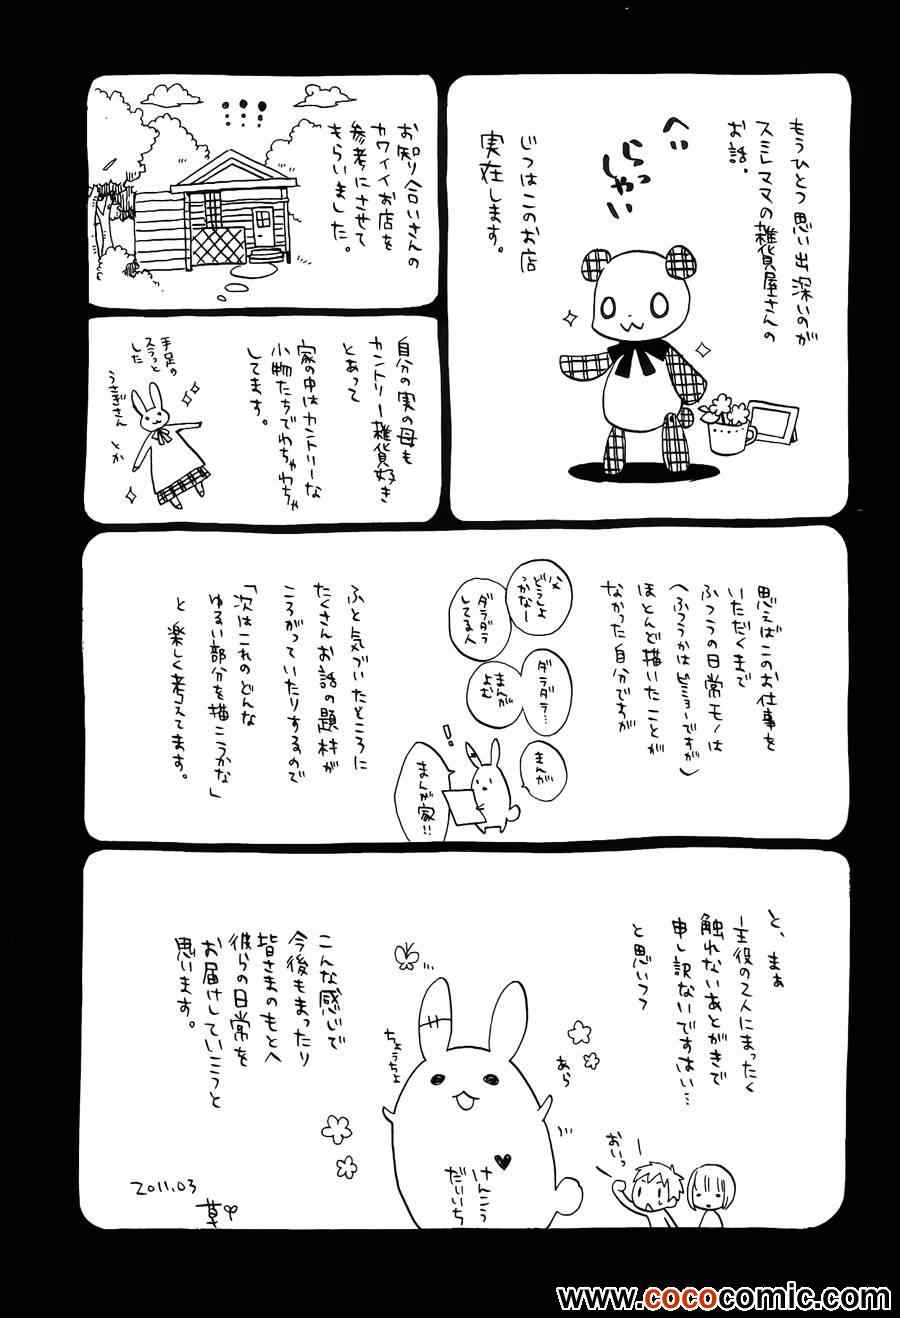 もうひとつ思い出深いのが
スミレママの雑貨屋さんの
お話。
へい
らっ
しゃい
じつはこのお店
実在します。
お知り合いさんの
カワイイお店を
参考にさせて
もらいました。
自分の実の母も
カントリー雑貨好き
とあって
家の中はカントリーな
小物たちでわちゃわちゃ
してます。
手足の
スラっと
した
うさぎさん
とか
思えばこのお仕事を
いただくまで
ふつうの日常モノは
(ふつうかはビミョーですが)
ほとんど描いたことが
なかった自分ですが
いや
どうしよ
うかなー
ダラダラ
してる人
ダラダラ…
まんが
よむ
まんが
!
まんが家!!
ふと気づいたところに
たくさんお話の題材が
ころがっていたりするので
「次はこれのどんな
ゆるい部分を描こうかな」
と楽しく考えてます。
と、まぁ
主役の2人にまったく
触れないあとがきで
申し訳ないですはい…
と思いつつ
こんな感じで
今後もまったり
皆さまのもとへ
彼らの日常を
お届けしていこうと
思います。
ちょうちょ
あら
おいっ
けんこう
だいいち
2011.03
草
www.cococomic.com